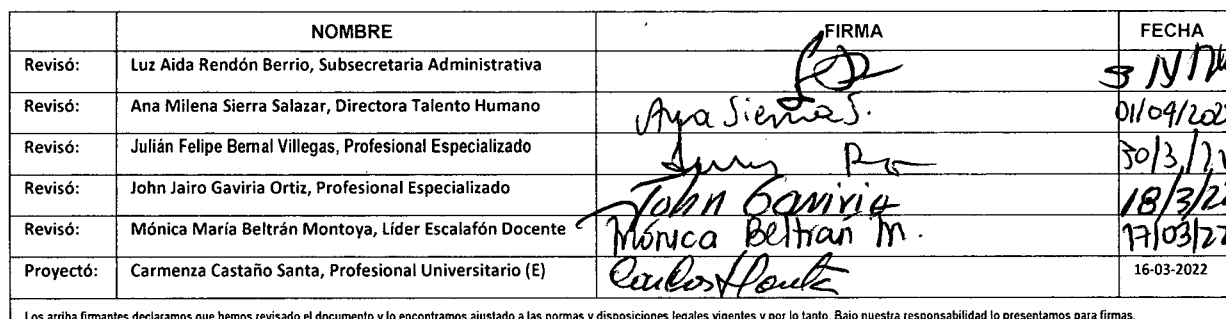 NOMBRE FIRMA FECHA
Revisó: Luz Aida Rendón Berrio, Subsecretaria Administrativa
Revisó: Ana Milena Sierra Salazar, Directora Talento Humano Ana Sierra S. 01/04/202
Revisó: Julián Felipe Bernal Villegas, Profesional Especializado 30/3/
Revisó: John Jairo Gaviria Ortiz, Profesional Especializado John Gaviria 18/3/2
Revisó: Mónica María Beltrán Montoya, Líder Escalafón Docente Mónica Beltrán M. 17/03/22
Proyectó: Carmenza Castaño Santa, Profesional Universitario (E) 16-03-2022
Los arriba firmantes declaramos que hemos revisado el documento y lo encontramos ajustado a las normas y disposiciones legales vigentes y por lo tanto. Bajo nuestra responsabilidad lo presentamos para firmas.